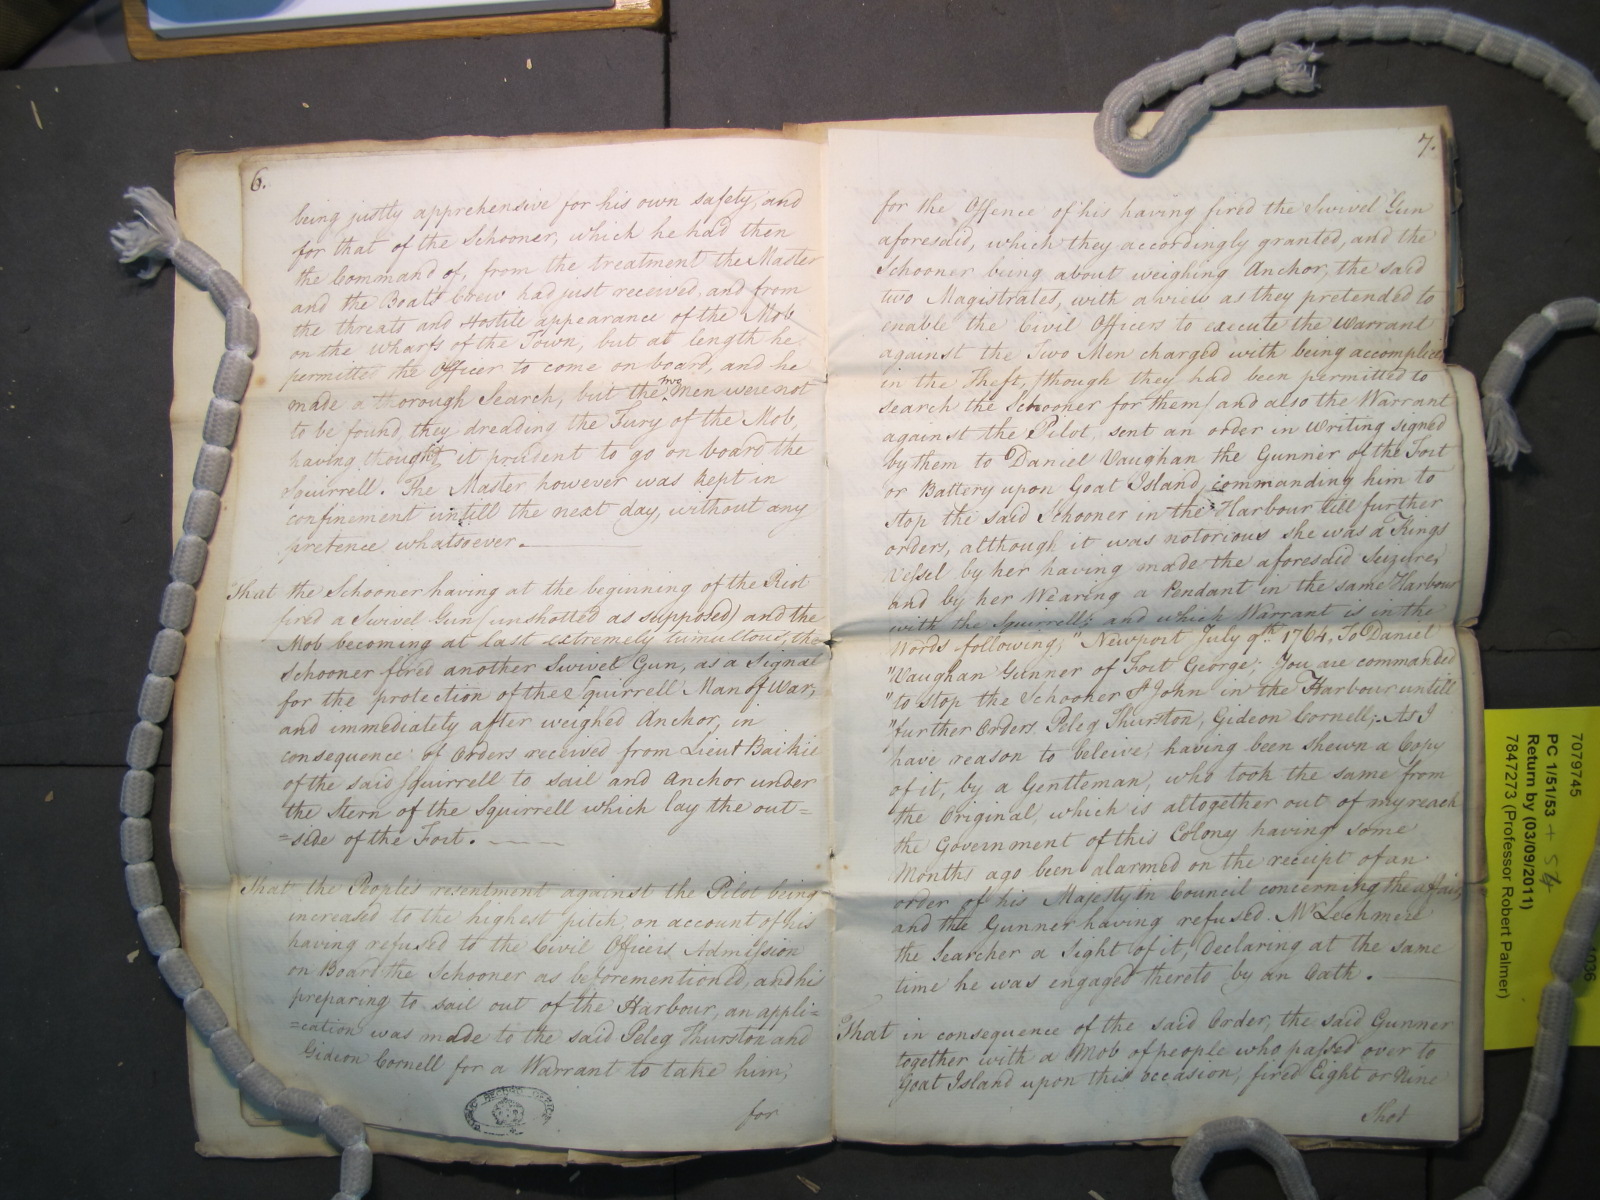 6.
being justly apprehensive for his own safety, and
for that of the Schooner, which he had then
the Command of, from the treatment the Master
and the Boats Crew had just received, and from
the threats and Hostile appearance of the Mob
on the Wharfs of the Town, but at length he
permitted the Officer to come on board, and he
made a thorough Search, but the two Men were not
to be found, they dreading the Fury of the Mob,
having thought it prudent to go on board the
Squirrell. The Master however was kept in
confinement untill the next day, without any
pretence whatsoever.
That the Schooner having at the beginning of the Riot
fired a Swivel Gun (unshotted as supposed) and the
Mob becoming at last extremely tumultous, the
Schooner fired another Swivel Gun, as a Signal
for the protection of the Squirrell Man of War,
and immediately after weighed Anchor, in
consequence of Orders received from Lieut Baikie
of the said Squirrell to sail and Anchor under
the Stern of the Squirrell which lay the out=
=side of the Fort.
That the People's resentment against the Pilot being
increased to the highest pitch, on account of his
having refused to the Civil Officers Admission
on Board the Schooner as beforementioned, and his
preparing to sail out of the Harbour, an appli=
=cation was made to the said Peleg Thurston and
Gideon Cornell for a Warrant to take him,
for
PUBLIC RECORD OFFICE
7.
for the Offence of his having fired the Swivel Gun
aforesaid, which they accordingly granted, and the
Schooner being about weighing Anchor, the said
two Magistrates, with a view as they pretended to
enable the Civil Officers to execute the Warrant
against the Two Men charged with being accomplices
in the Theft, (though they had been permitted to
search the Schooner for them) and also the Warrant
against the Pilot, sent an order in Writing signed
by them to Daniel Vaughan the Gunner of the Fort
or Battery upon Goat Island, commanding him to
stop the said Schooner in the Harbour till further
orders, although it was notorious she was a Kings
Vessel by her having made the aforesaid Seizure,
and by her Wearing a Pendant in the same Harbour
with the Squirrell; and which Warrant is in the
Words following; "Newport July 9th 1764. To Daniel
"Vaughan Gunner of Fort George; You are commanded
"to Stop the Schooner St John in the Harbour untill
"further Orders. Peleg Thurston, Gideon Cornell; As I
have reason to beleive, having been shewn a Copy
of it, by a Gentleman, who took the same from
the Original, which is altogether out of my reach
the Government of this Colony having some
Months ago been alarmed on the receipt of an
order of his Majesty in Council concerning the affair,
and the Gunner having refused Mr Lechmere
the Searcher a Sight of it, declaring at the same
time he was engaged thereto by an Oath.
That in consequence of the said Order, the said Gunner
together with a Mob of people who passed over to
Goat Island upon this occasion, fired Eight or Nine
Shot
7079745
PC 1/51/53 + 54
Return by (03/09/2011)
7847273 (Professor Robert Palmer)